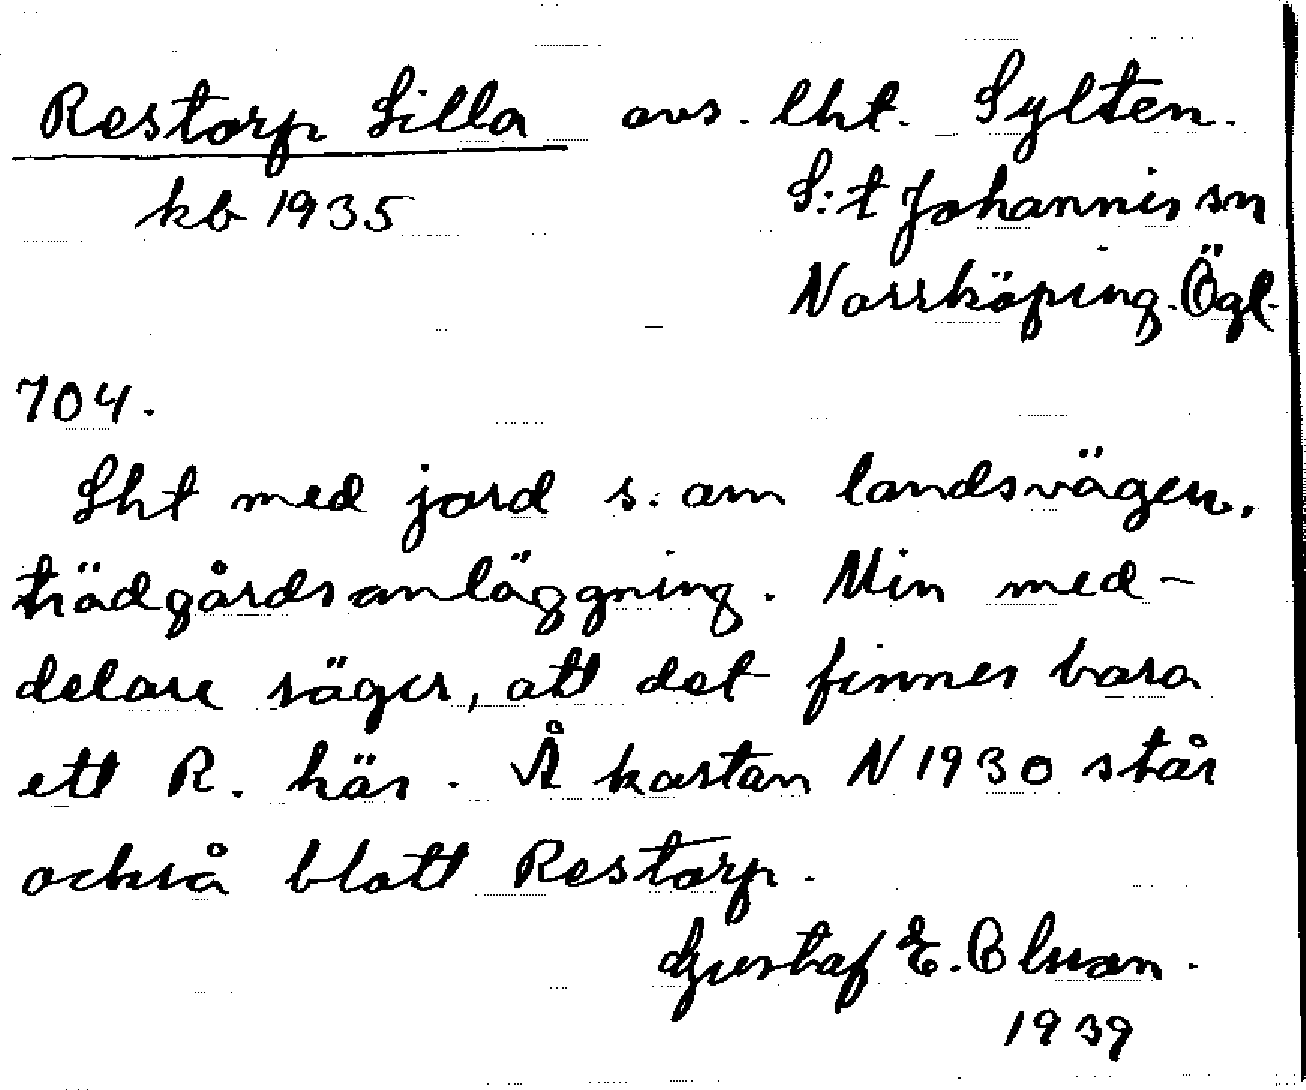 Restorp Lilla avs. lht. Sylten.
kb 1935 S:t Johannis sn
Norrköping. Ögl.
704.
Lht med jord s. om landsvägen,
trädgårdsanläggning. Min med-
delare säger, att det finnes bara
ett R. här. Å kartan N 1930 står
också blott Restorp.
Gustaf E. Olsson.
1939